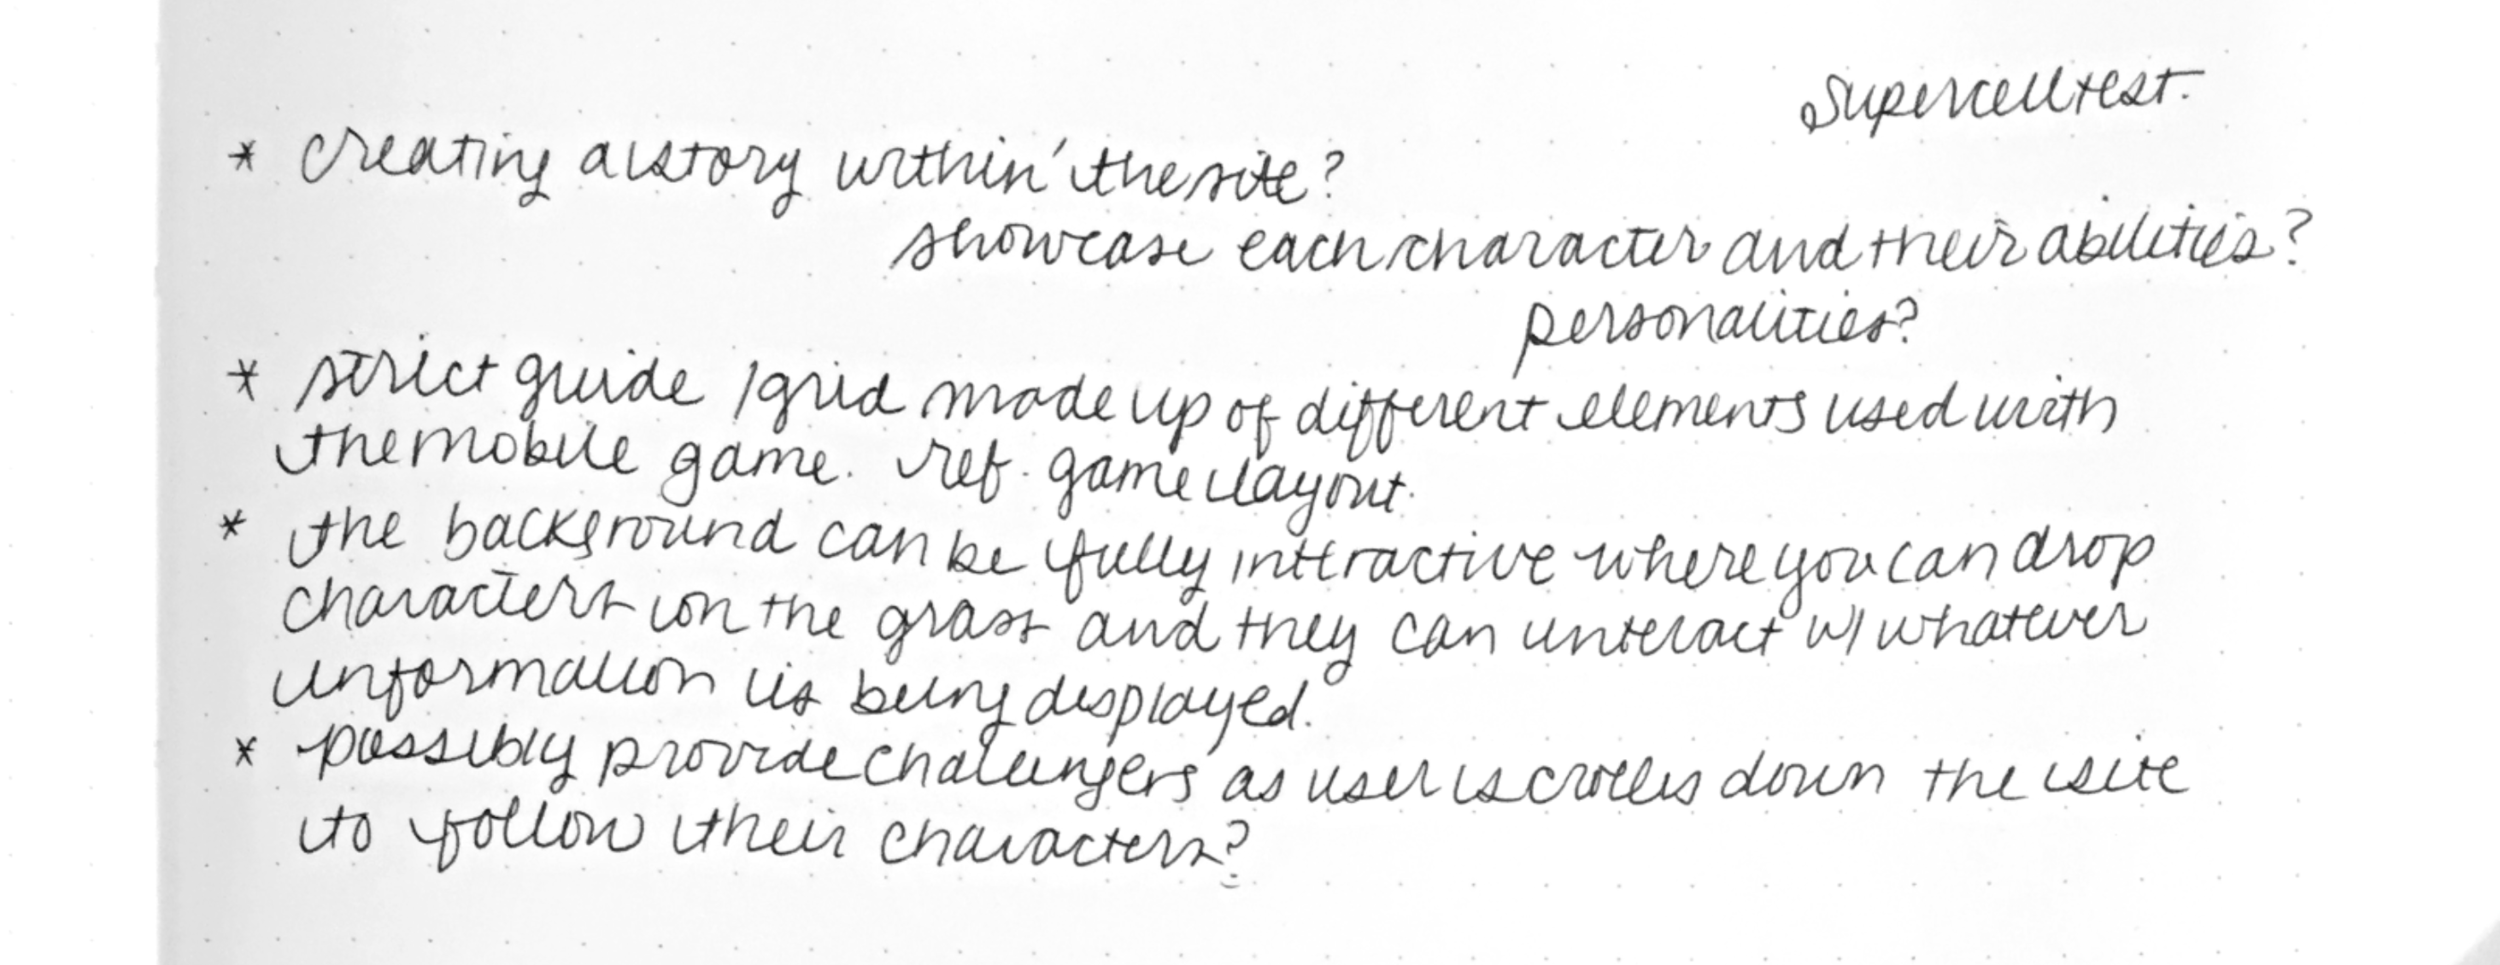 Supercell test.
* creating a story within the site?
showcase each character and their abilities?
personalities?
* strict guide / grid made up of different elements used with
the mobile game. ref. game layout.
* the background can be fully interactive where you can drop
characters on the grass and they can interact w/ whatever
information is being displayed.
* possibly provide challengers as user scrolls down the site
to follow their characters?